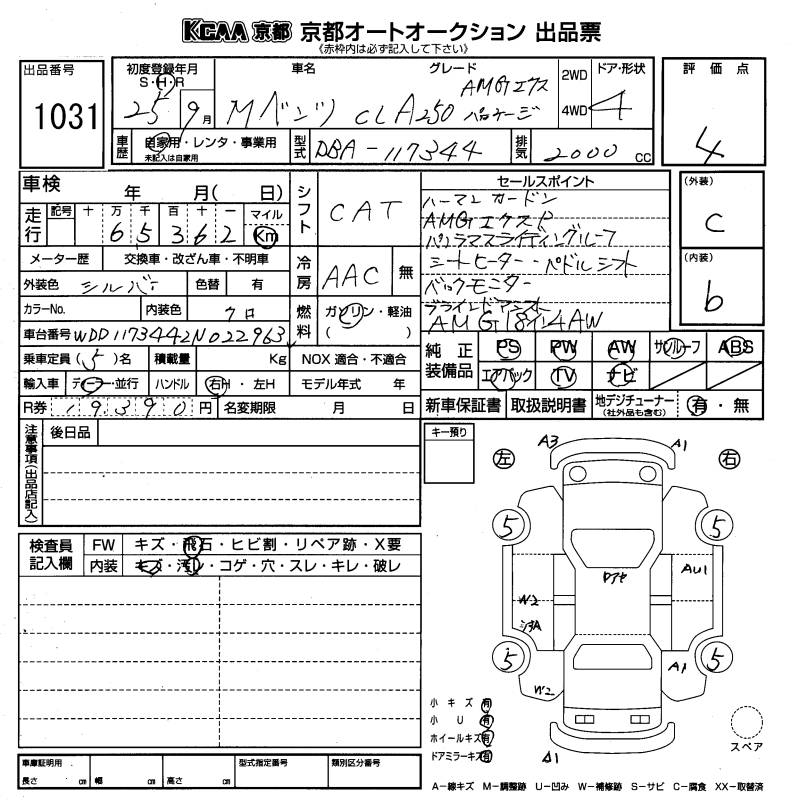 KCAA 京都 京都オートオークション 出品票
《赤枠内は必ず記入して下さい》
出品番号
1031
初度登録年月
S・H・R
25 9月
車名
Mベンツ CLA250
グレード
AMGエクス
パッケージ
2WD
4WD
ドア・形状
4
評価点
4
車歴
自家用・レンタ・事業用
未記入は自家用
型式
DBA-117344
排気
2000 cc
車検 年 月( 日)
走行
記号 十 万 千 百 十 一 マイル
6 5 3 6 2 Km
メーター歴 交換車・改ざん車・不明車
外装色 シルバー 色替 有
カラーNo. 内装色 クロ
車台番号 WDD1173442N022963
乗車定員 (5)名 積載量 Kg NOX 適合・不適合
輸入車 ディーラー・並行 ハンドル 右H・左H モデル年式 年
R券 19390円 名変期限 月 日
シフト CAT
冷房 AAC 無
燃料 ガソリン・軽油
( )
セールスポイント
ハーマンカードン
AMGエクスP
パノラマスライディングルーフ
シートヒーター・パドルシフト
バックモニター
ブラインドアシスト
AMG18インチAW
(外装)
C
(内装)
b
純正装備品
PS PW AW サンルーフ ABS
エアバック TV ナビ
新車保証書 取扱説明書 地デジチューナー 有・無
(社外品も含む)
注意事項(出品店記入)
後日品
キー預り
検査員記入欄
FW キズ・飛石・ヒビ割・リペア跡・X要
内装 キズ・汚レ・コゲ・穴・スレ・キレ・破レ
左 右
A3 A1
5 5
AU1
W2
5 5
A1
W2
A1
小キズ 有
小U 有
ホイールキズ 有
ドアミラーキズ 有
スペア
車庫証明用
長さ cm 幅 cm 高さ cm
型式指定番号
類別区分番号
A-線キズ M-調整跡 U-凹み W-補修跡 S-サビ C-腐食 XX-取替済